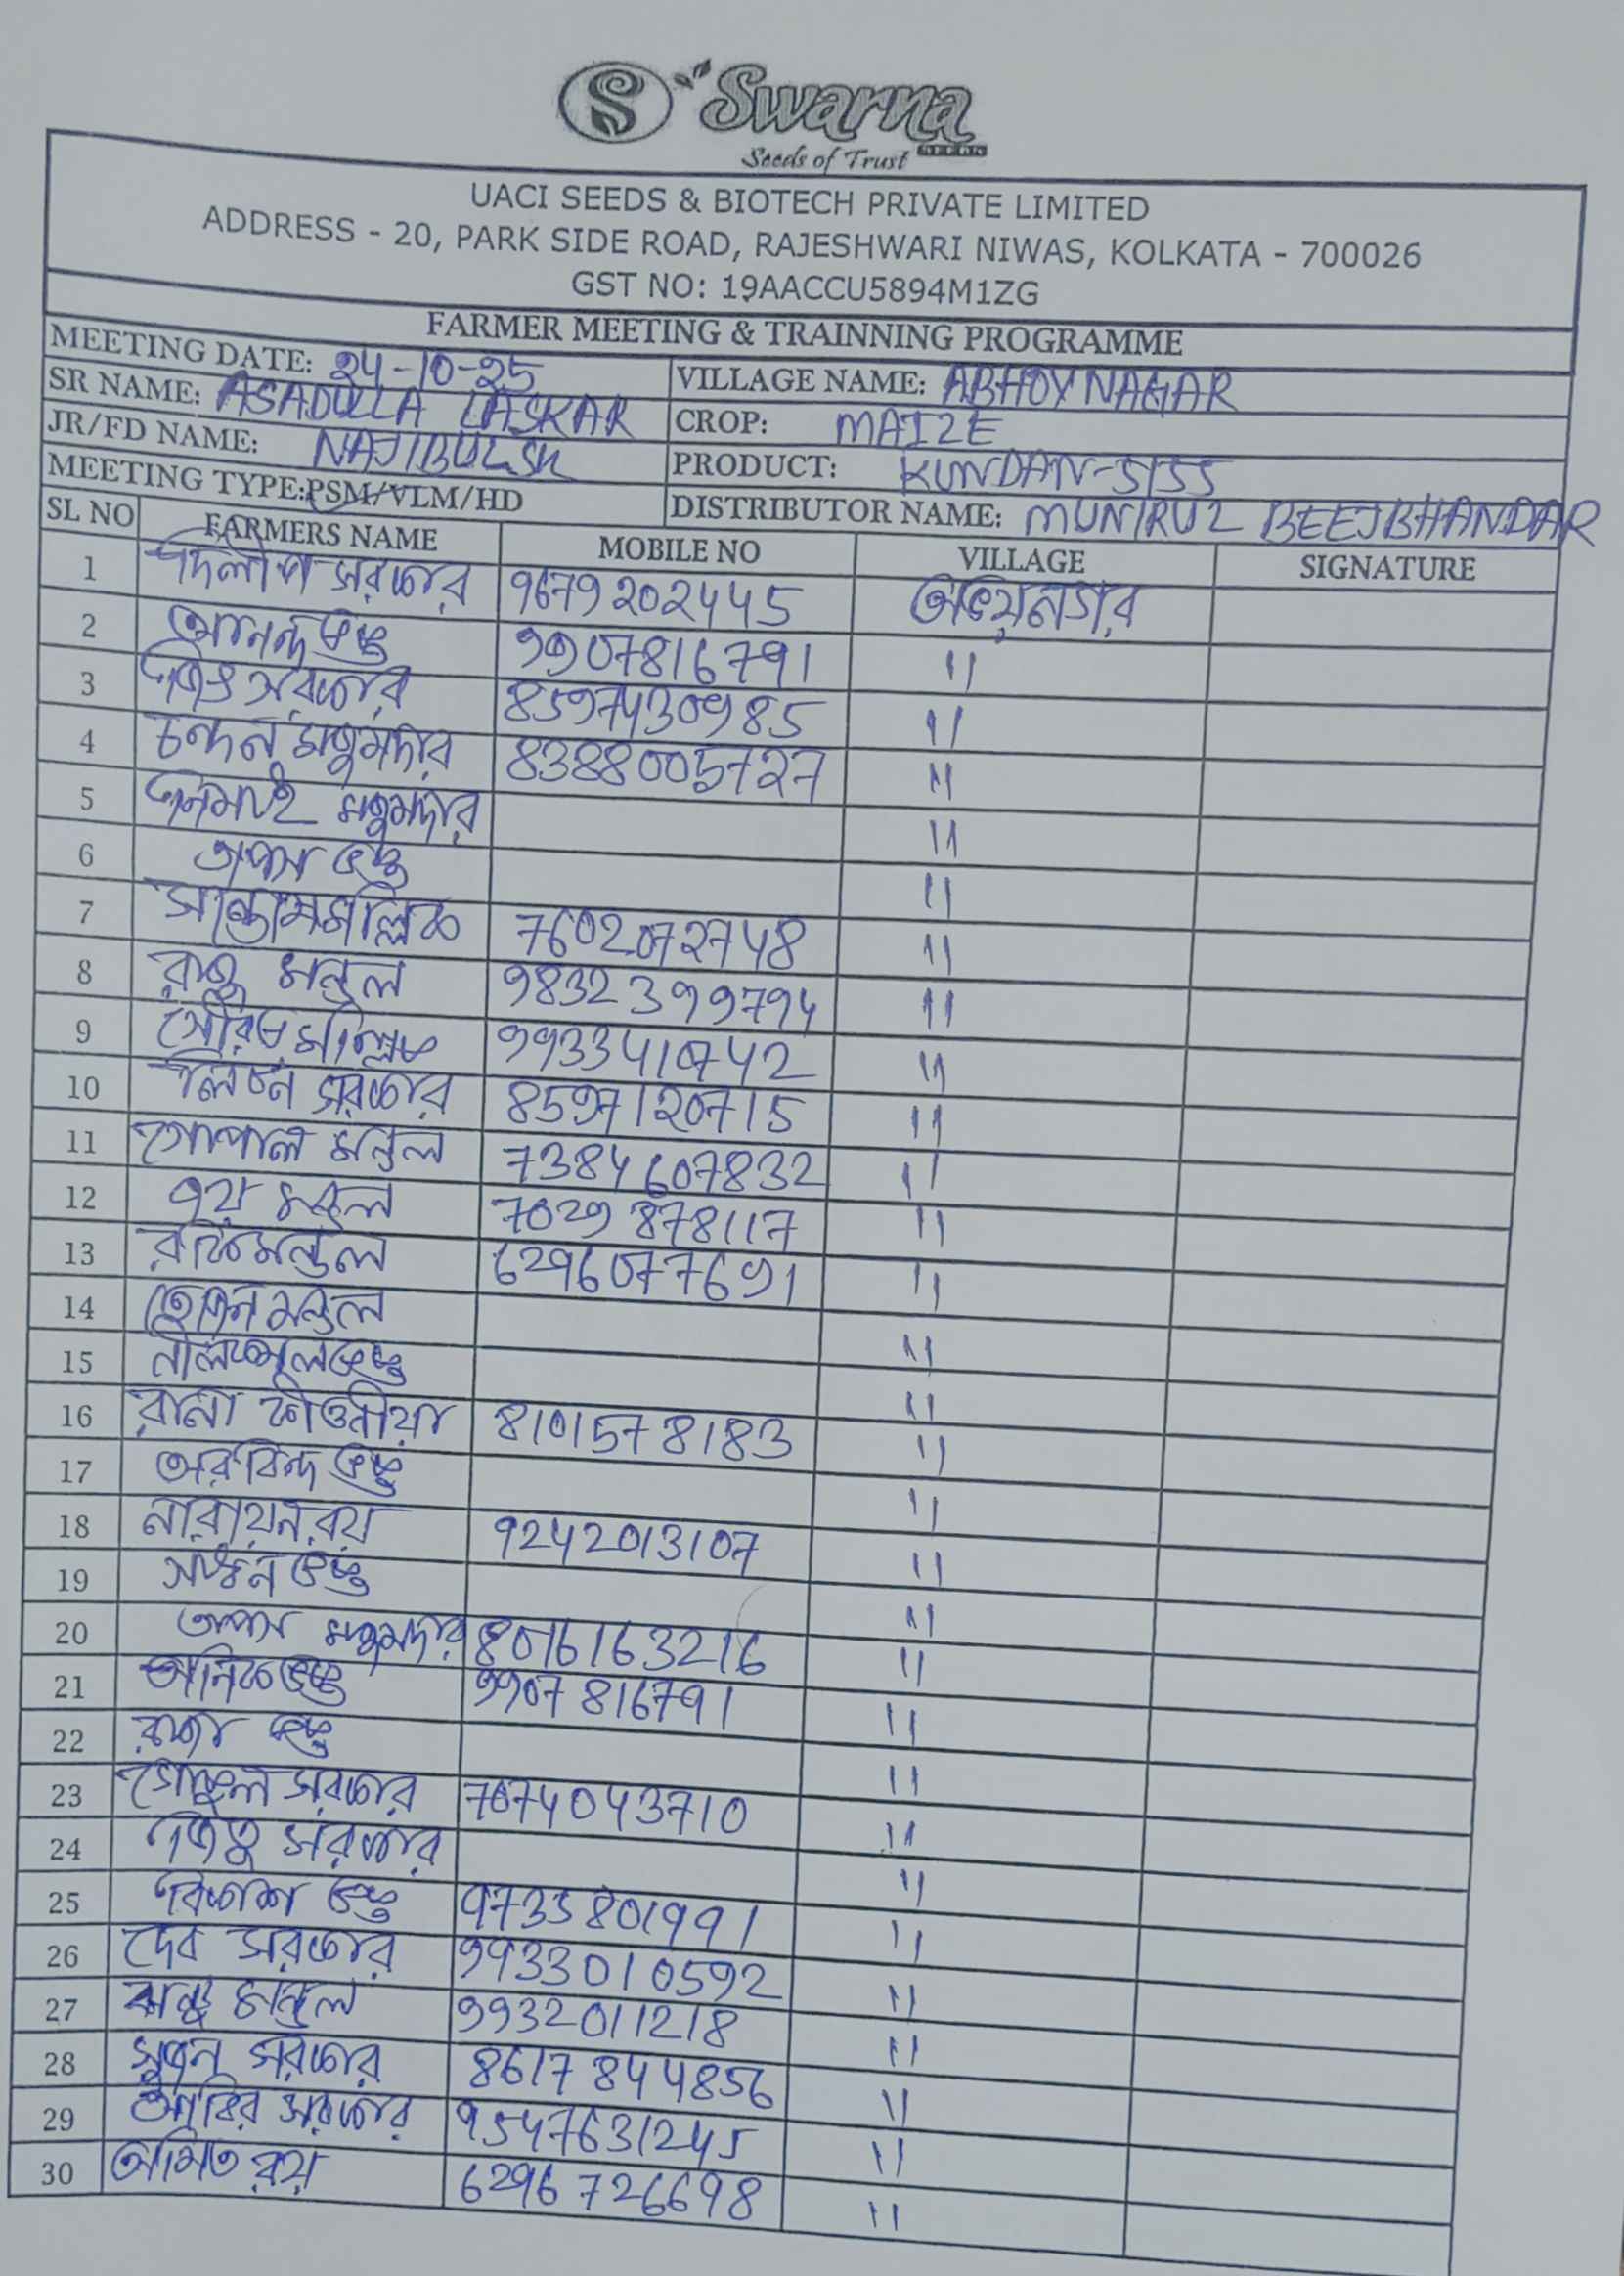 Swarna
Seeds of Trust
UACI SEEDS & BIOTECH PRIVATE LIMITED
ADDRESS - 20, PARK SIDE ROAD, RAJESHWARI NIWAS, KOLKATA - 700026
GST NO: 19AACCU5894M1ZG
FARMER MEETING & TRAINNING PROGRAMME
MEETING DATE: 24-10-25 VILLAGE NAME: ABHOYNAGAR
SR NAME: ASADULLA LASKAR CROP: MAIZE
JR/FD NAME: NAJIBUL SK PRODUCT: KUNDAN-5155
MEETING TYPE:PSM/VLM/HD DISTRIBUTOR NAME: MUNIRUL BEEJBHANDAR
SL NO FARMERS NAME MOBILE NO VILLAGE SIGNATURE
1 দিলীপ সরকার 9679202445 অভয়নগর
2 আনন্দ কুন্ডু 9907816791 "
3 সরকার 8597430985 "
4 চন্দন মজুমদার 8388005727 "
5 নিমাই মজুমদার "
6 তাপস কুন্ডু "
7 সন্তোষ মল্লিক 7602072748 "
8 রাজু মন্ডল 9832399794 "
9 সৌরভ মল্লিক 9933410742 "
10 লিটন সরকার 8597120715 "
11 গোপাল মন্ডল 7384607832 "
12 মন্ডল 7029878117 "
13 মন্ডল 6296077691 "
14 মন্ডল "
15 কুন্ডু "
16 রানা কীর্তনীয়া 8101578183 "
17 অরবিন্দ কুন্ডু "
18 নারায়ন রায় 9242013107 "
19 কুন্ডু "
20 তাপস মজুমদার 8016163216 "
21 অনিক কুন্ডু 9907816791 "
22 কুন্ডু "
23 গোকুল সরকার 7074043710 "
24 জিতু সরকার "
25 বিকাশ কুন্ডু 9735801991 "
26 দেব সরকার 9933010592 "
27 মন্ডল 9932011218 "
28 সুজন সরকার 8617844856 "
29 আবির সরকার 9547631245 "
30 অমিত রায় 6296726698 "